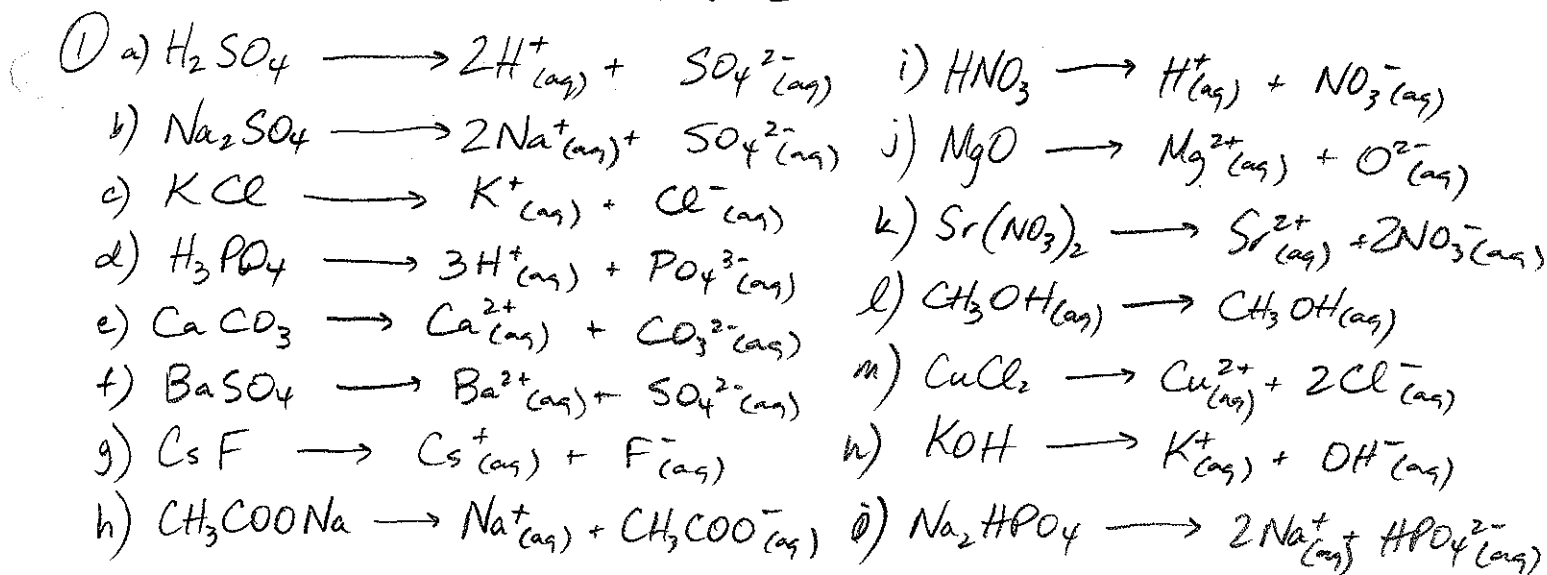 ① a) H₂SO₄ ⟶ 2H⁺(aq) + SO₄²⁻(aq)
b) Na₂SO₄ ⟶ 2Na⁺(aq) + SO₄²⁻(aq)
c) KCl ⟶ K⁺(aq) + Cl⁻(aq)
d) H₃PO₄ ⟶ 3H⁺(aq) + PO₄³⁻(aq)
e) CaCO₃ ⟶ Ca²⁺(aq) + CO₃²⁻(aq)
f) BaSO₄ ⟶ Ba²⁺(aq) + SO₄²⁻(aq)
g) CsF ⟶ Cs⁺(aq) + F⁻(aq)
h) CH₃COONa ⟶ Na⁺(aq) + CH₃COO⁻(aq)
i) HNO₃ ⟶ H⁺(aq) + NO₃⁻(aq)
j) MgO ⟶ Mg²⁺(aq) + O²⁻(aq)
k) Sr(NO₃)₂ ⟶ Sr²⁺(aq) + 2NO₃⁻(aq)
l) CH₃OH(aq) ⟶ CH₃OH(aq)
m) CuCl₂ ⟶ Cu²⁺(aq) + 2Cl⁻(aq)
n) KOH ⟶ K⁺(aq) + OH⁻(aq)
o) Na₂HPO₄ ⟶ 2Na⁺(aq) + HPO₄²⁻(aq)